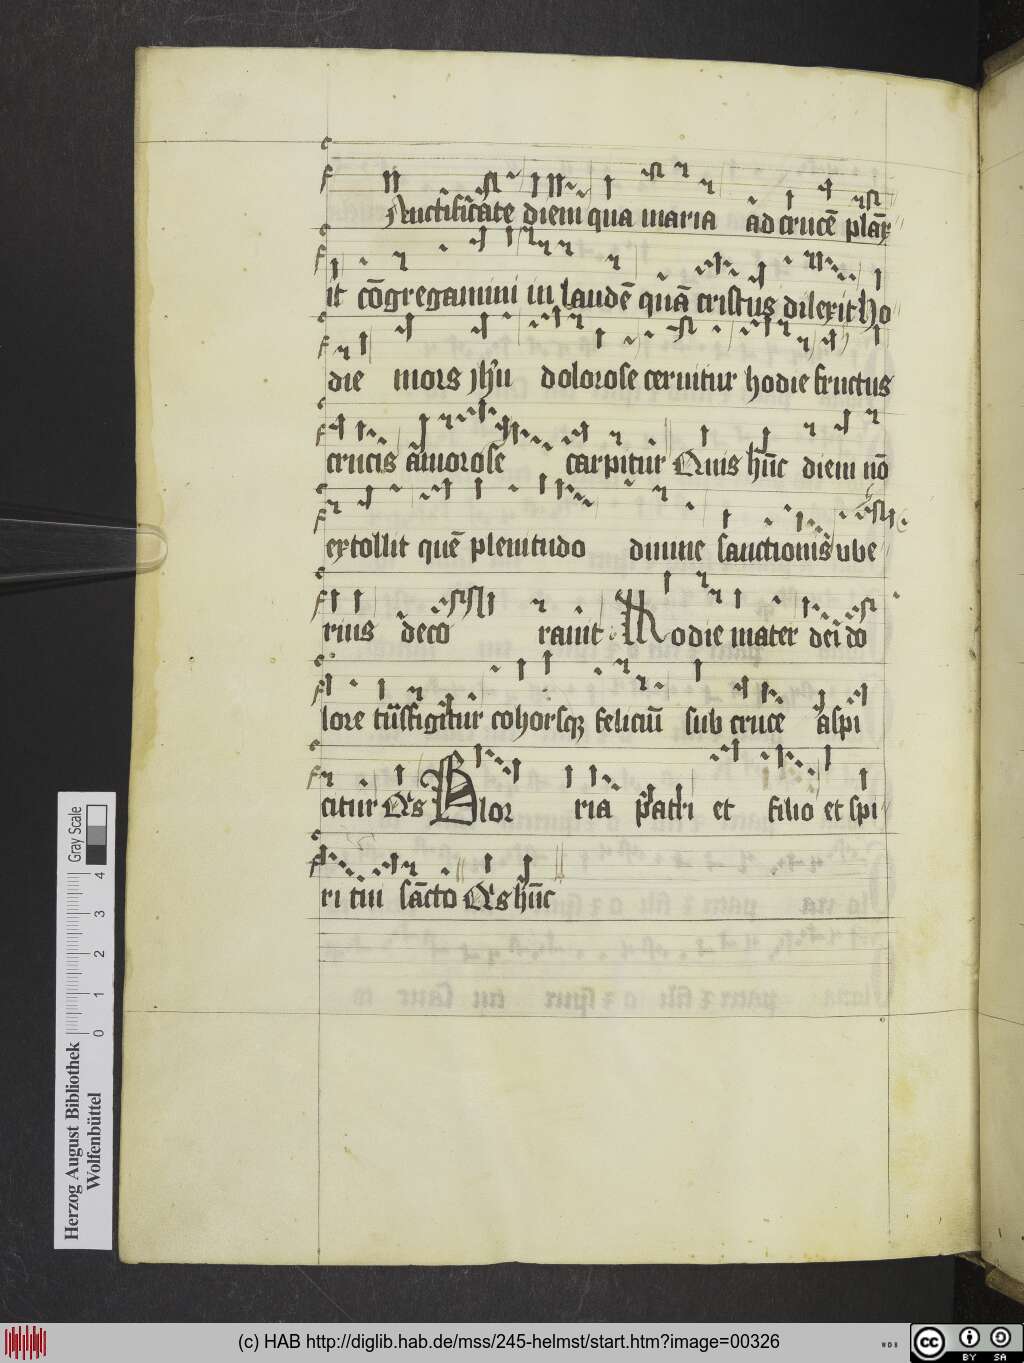 Anctificate diem qua maria ad crucē plāx
it cōgregamini in laudē quā cristus dilexit ho
die mors jhū dolorose cernitur hodie fructus
crucis āmorose carpitur Quis hūc diem nō
extollit quē plenitudo diuine sanctionis vbe
rius deco rauit Hodie mater dei do
lore cohorsqz feliciū sub cruce aspi
citur Q's Glor ria patri et filio et spi
ri tui sācto Q's hūc
Gray Scale
4
3
2
1
0
Herzog August Bibliothek
Wolfenbüttel
(c) HAB http://diglib.hab.de/mss/245-helmst/start.htm?image=00326
WDB
cc BY SA